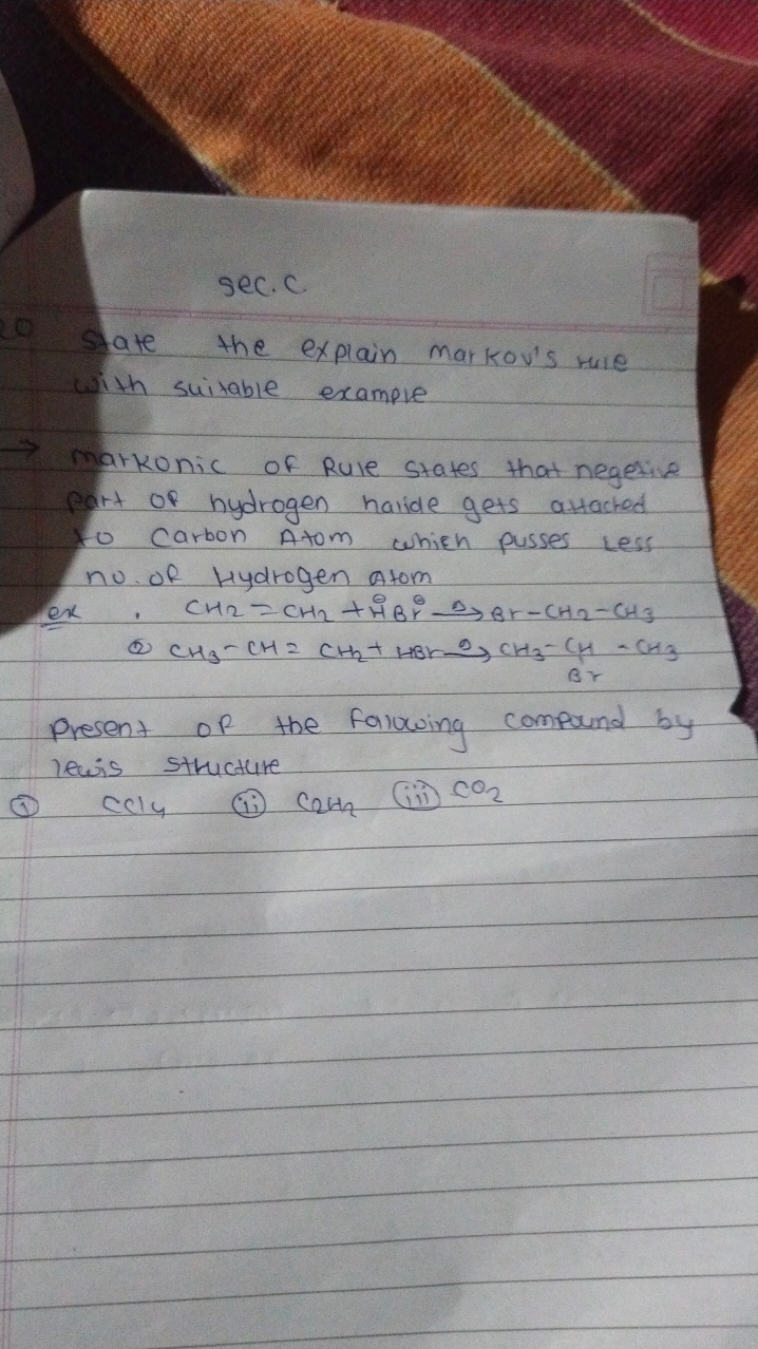 sec. C
20 state the explain markov's rule
with suitable example
→ markonic of Rule states that negetive
part of hydrogen halide gets attached
to Carbon Atom which pusses Less
no. of Hydrogen Atom
ex . CH2 = CH2 + H⊕Br⊖ → Br-CH2-CH3
② CH3-CH= CH2+ HBr → CH3-CH-CH3
Br
present of the following compound by
lewis structure
① CCl4 (ii) C2H2 (iii) CO2